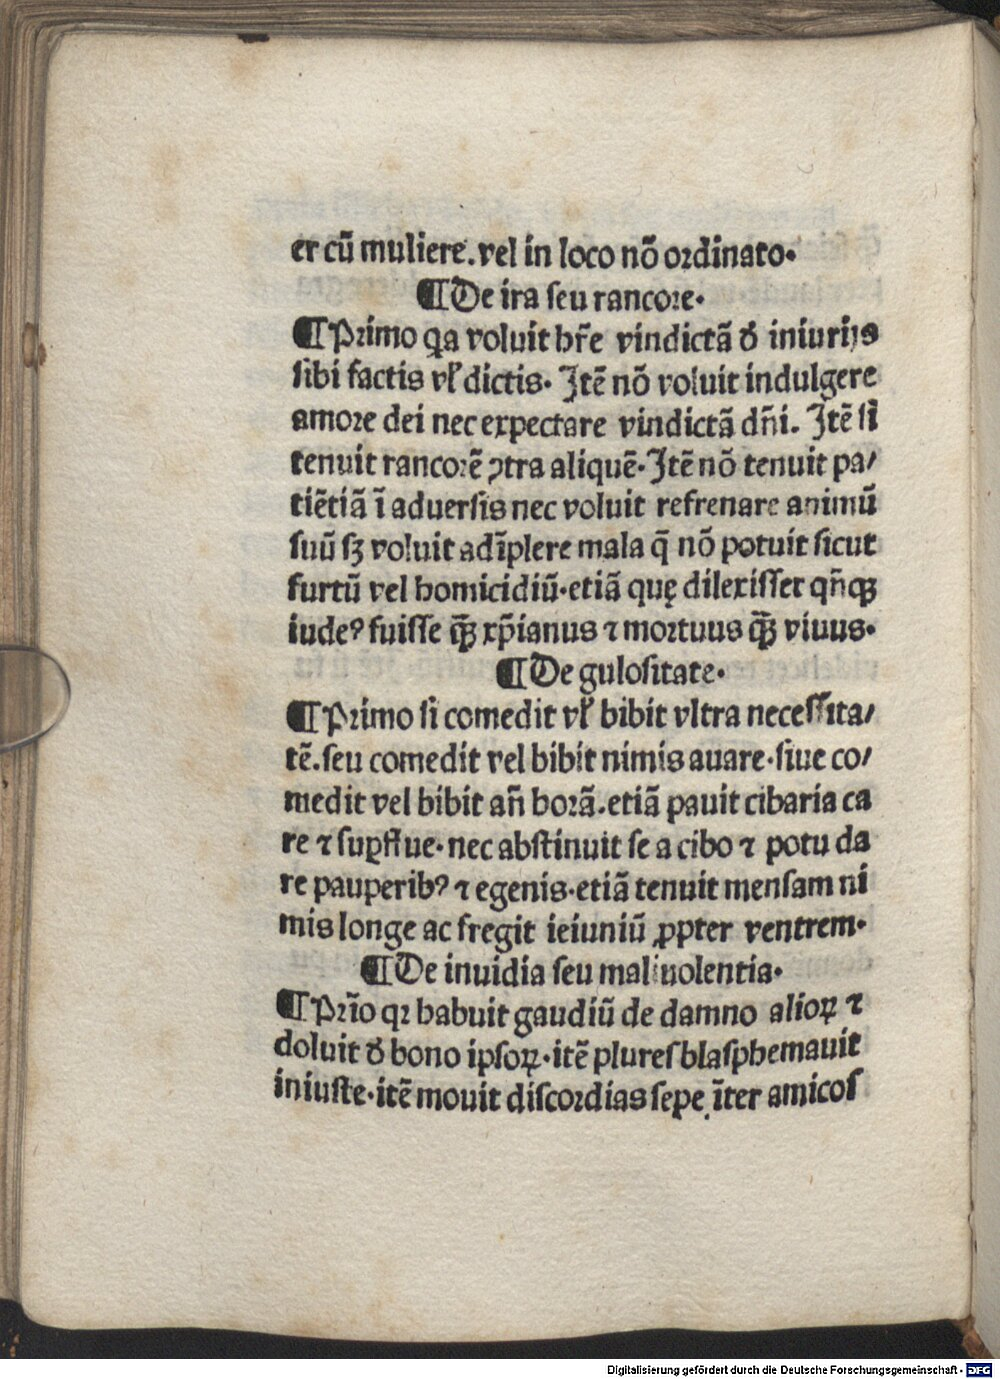 er cũ muliere. vel in loco nõ ordinato.
¶ De ira seu rancore.
¶ Primo qa voluit hr̃e vindictã đ iniurijs
sibi factis vł dictis. Itẽ nõ voluit indulgere
amore dei nec expectare vindictã dñi. Itẽ si
tenuit rancorẽ ꝯtra aliquẽ. Itẽ nõ tenuit pa/
tiẽtiã ĩ aduersis nec voluit refrenare animũ
suũ sꝫ voluit adĩplere mala q̃ nõ potuit sicut
furtũ vel homicidiũ. etiã quę dilexisset qñqꝫ
iudeꝰ fuisse q̃ꝫ xp̃ianus ⁊ mortuus q̃ꝫ viuus.
¶ De gulositate.
¶ Primo si comedit vł bibit vltra necessita/
tẽ. seu comedit vel bibit nimis auare. siue co/
medit vel bibit añ horã. etiã pauit cibaria ca
re ⁊ suꝑflue. nec abstinuit se a cibo ⁊ potu da
re pauperibꝰ ⁊ egenis. etiã tenuit mensam ni
mis longe ac fregit ieiuniũ ꝓpter ventrem.
¶ De inuidia seu maliuolentia.
¶ Prĩo qꝛ habuit gaudiũ de damno alioꝝ ⁊
doluit đ bono ipsoꝝ. itẽ plures blasphemauit
iniuste. itẽ mouit discordias sepe ĩter amicos
Digitalisierung gefördert durch die Deutsche Forschungsgemeinschaft - DFG